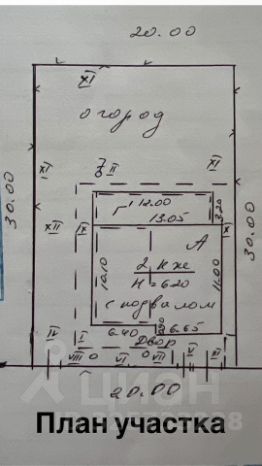 20.00
XI
огород
30.00
XI
II
XI
30.00
XII
Г 12.00
3.20
13.05
X
X
А
2 кже
Н=6.20
с подвалом
10.10
11.00
6.40
6.65
IV
I
Двор
VIII
VI
VII
V
IV
20.00
циан
План участка